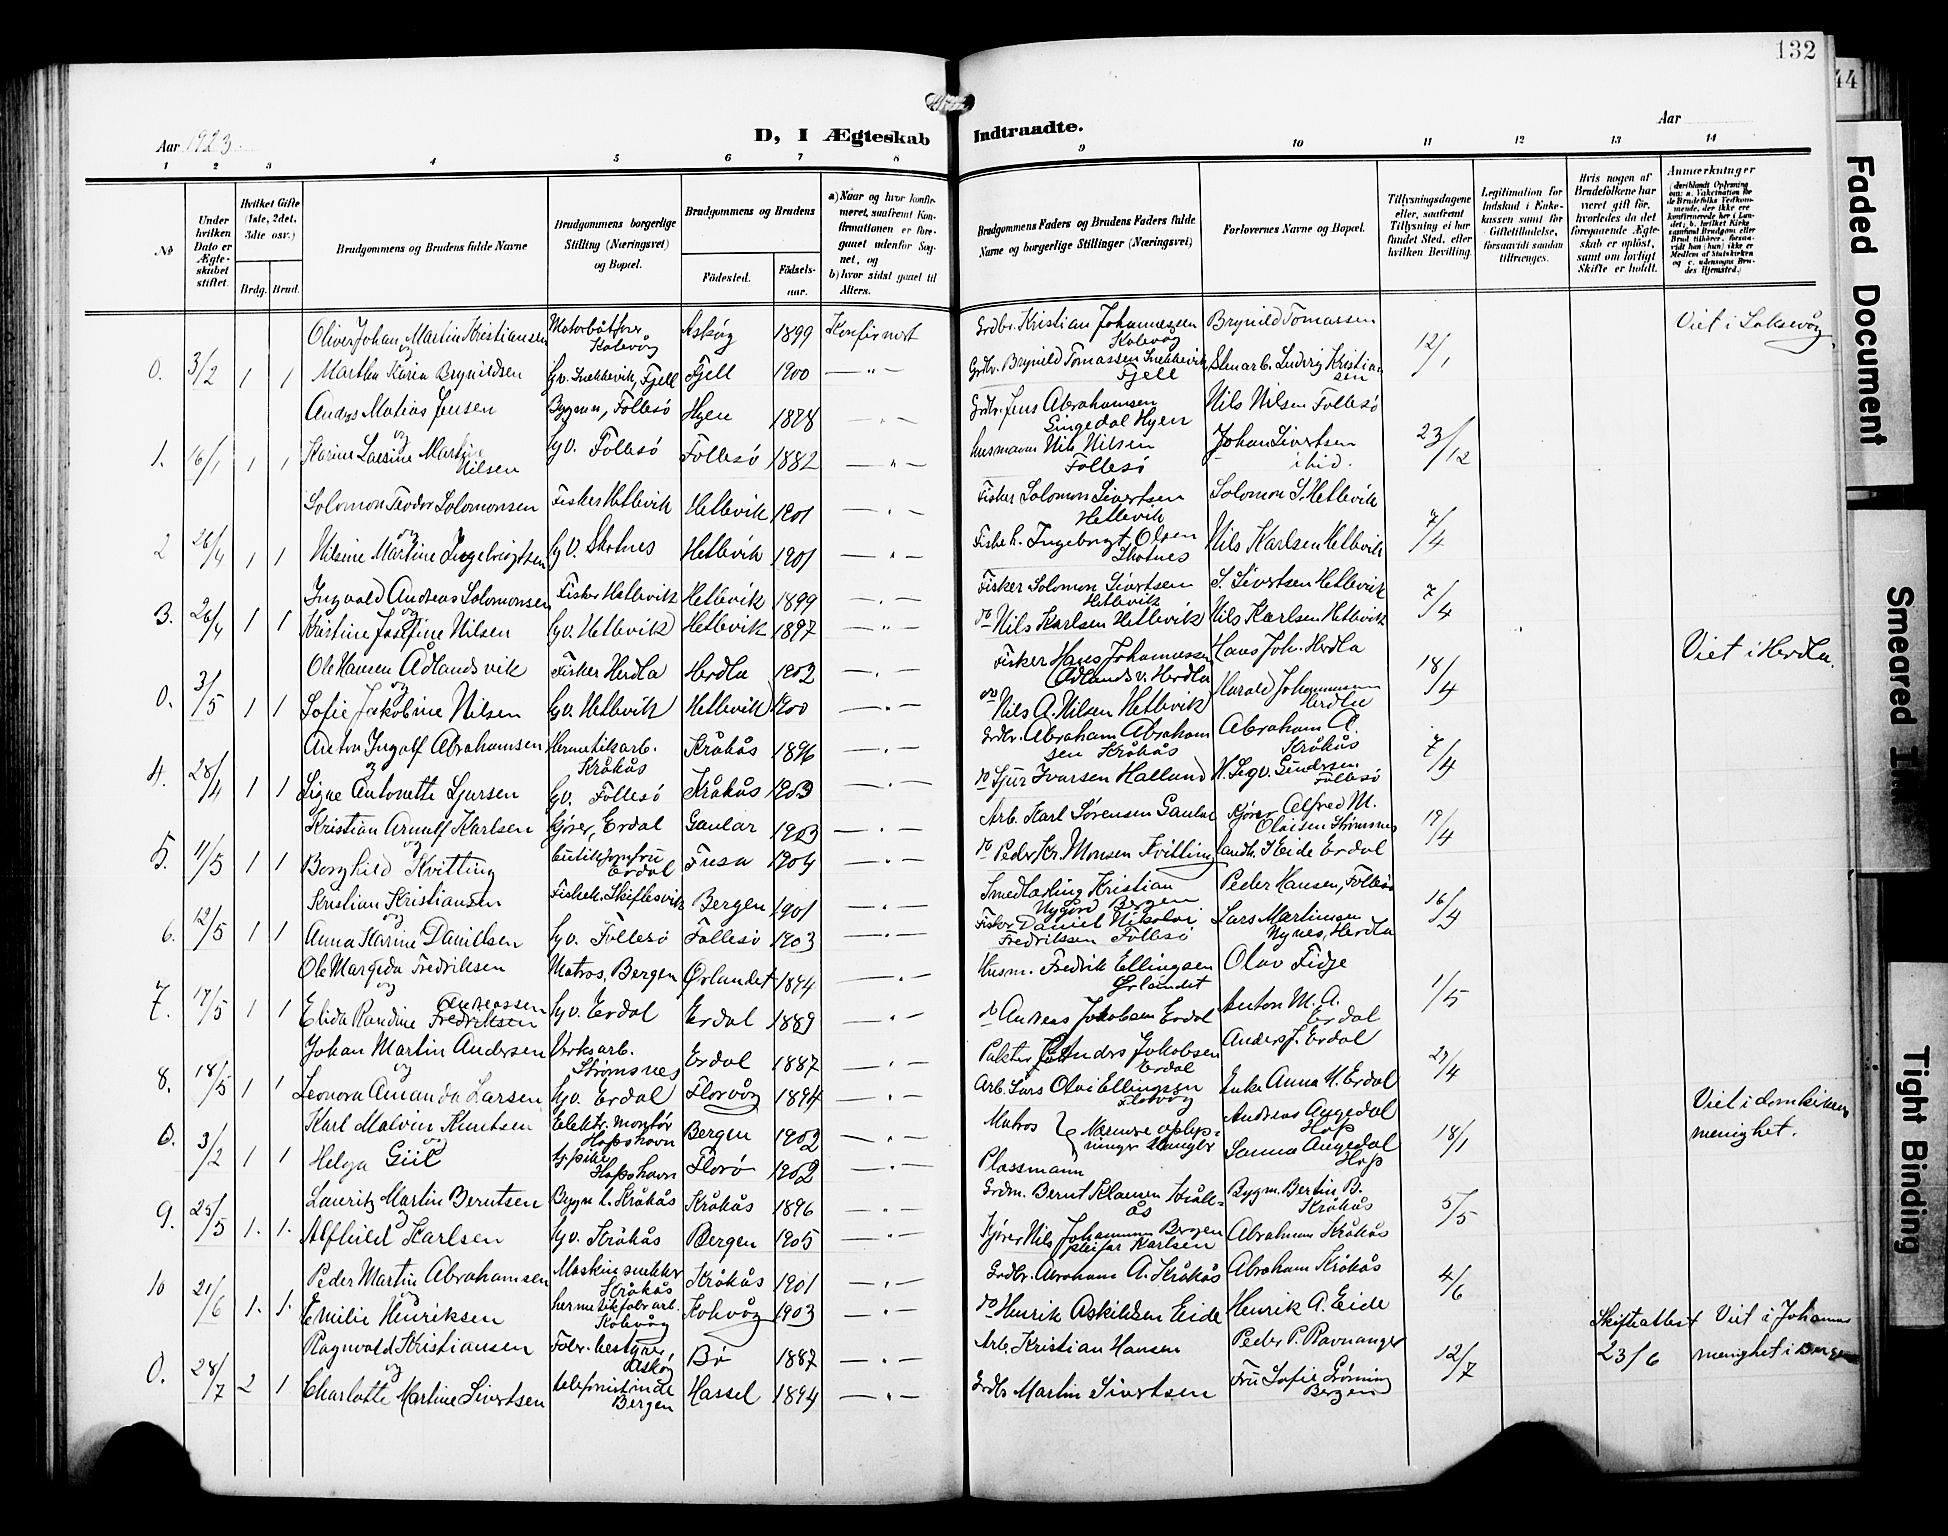 132
44
Aar 1923
D, I Ægteskab Indtraadte.
Aar
1 2 3 4 5 6 7 8 9 10 11 12 13 14
No
Under hvilken Dato er Ægteskabet stiftet.
Hvilket Gifte (1ste, 2det, 3die osv.)
Brdg. Brud.
Brudgommens og Brudens fulde Navne
Brudgommens borgerlige Stilling (Næringsvei) og Bopæl.
Brudgommens og Brudens
Fødested. Fødselsaar.
a) Naar og hvor konfirmeret, saafremt Konfirmationen er foregaaet udenfor Sognet, og b) hvor sidst gaaet til Alters.
Brudgommens Faders og Brudens Faders fulde Navne og borgerlige Stillinger (Næringsvei)
Forlovernes Navne og Bopæl.
Tillysningsdagene eller, saafremt Tillysning ei har fundet Sted, efter hvilken Bevilling.
Legitimation for Indskud i Enkekassen samt for Giftetilladelse, forsaavidt saadan tiltrænges.
Hvis nogen af Brudefolkene har været gift før, hvorledes da det foregaaende Ægteskab er opløst, samt om lovligt Skifte er holdt.
Anmærkninger
Oliver Johan Martin Kristiansen Motorbåtfører Kolevåg Askøy 1899 Konfirmert Grdbr. Kristian Johannessen Kolevåg Brynild Tomassen Viet i Laksevåg
0. 3/2 1 1 og Martha Karia Brynildsen Gv. Snekkevik, Fjell Fjell 1900 —"— Grdbr. Brynild Tomassen Snekkevik Fjell Stenarb. Ludvig Kristiansen 12/1
Anders Matias Jensen Bygm., Follesø Hyen 1878 —"— Grdbr. Jens Abrahamsen Gingedal Hyen Nils Nilsen Follesø
1. 16/1 1 1 og Karine Lasine Martine Nilsen Gv. Follesø Follesø 1882 —"— husmann Nils Nilsen Follesø Johan Sivertsen ibid. 23/12
Solomon Teodor Solomonsen Fisker Hetlevik Hetlevik 1901 —"— Fisker Solomon Sivertsen Hetlevik Solomon S. Hetlevik
2 26/4 1 1 og Nilsine Martine Ingebrigtsen Gv. Skotnes Hetlevik 1901 —"— Fiskeh. Ingebrigt Olsen Skotnes Nils Karlsen Hetlevik 7/4
Ingvald Andreas Solomonsen Fisker Hetlevik Hetlevik 1899 —"— Fisker Solomon Sivertsen Hetlevik S. Sivertsen Hetlevik
3. 26/4 1 1 og Kristine Josefine Nilsen Gv. Hetlevik Hetlevik 1897 —"— do Nils Karlsen Hetlevik Nils Karlsen Hetlevik 7/4
Ole Hansen Ådlandsvik Fisker Herdla Herdla 1902 —"— Fisker Hans Johannessen Ådlandsv. Herdla Hans Joh. Herdla Viet i Herdla.
0. 3/5 1 1 og Sofie Jakobine Nilsen Gv. Hetlevik Hetlevik 1900 —"— do Nils A. Nilsen Hetlevik Harald Johannessen Herdla 18/4
Anton Ingolf Abrahamsen Hermetikarb. Kråkås Kråkås 1896 —"— Grdbr. Abraham Abrahamsen Kråkås Abraham A. Kråkås
4. 28/4 1 1 og Signe Antonette Sjursen Gv. Follesø Kråkås 1903 —"— do Sjur Ivarsen Halland Follesø 7/4
Kristian Arnulf Karlsen Kjører, Erdal Gaular 1903 —"— Arb. Karl Sørensen Gaular Kjører Alfred M. Olaisen Strømsnes
5. 11/5 1 1 og Borghild Kvitting Butikjomfru Erdal Fusa 1904 —"— do Peder Kr. Monsen Kvitting Landh. Eide Erdal 19/4
Kristian Kristiansen Fiskeh. Skiftesvik Bergen 1901 —"— Smedlærling Kristian Nygård Bergen Peder Hansen, Follesø
6. 12/5 1 1 og Anna Karine Danielsen Gv. Follesø Follesø 1903 —"— Fisker Daniel Nikolai Fredriksen Follesø Lars Martinsen Nynes, Herdla 16/4
Ole Margido Fredriksen Matros, Bergen Ørlandet 1874 —"— Husm. Fredrik Ellingsen Ørlandet Olav Fidje
7. 17/5 1 1 og Elida Randine Andreassen Fredriksen Gv. Erdal Erdal 1889 —"— do Andreas Jakobsen Erdal Anton M. A. Erdal 1/5
Johan Martin Andersen Verksarb. Strømsnes Erdal 1887 —"— Anders Jakobsen Erdal Anders J. Erdal
8. 18/5 1 1 og Leonora Amanda Larsen Gv. Erdal Florvåg 1894 —"— Arb. Lars Olai Ellingsen Florvåg Enke Anna M. Erdal 29/4
Karl Malvin Knutsen Elektr. montør Hopshavn Bergen 1902 —"— Matros Nærmere oplysninger mangler Andreas Augedal Hop Viet i domkirkens menighet.
0. 3/2 1 1 og Helga Giil Hopshavn Florø 1902 Plassmann Sanna Augedal Hop 18/1
Lauritz Martin Berntsen Bygm. l. Kråkås Kråkås 1896 —"— Grdm. Bernt Klausen Kråkås Bygm. Bertin B. Kråkås
9. 25/5 1. 1. og Alfhild Karlsen Gv. Kråkås Bergen 1905 —"— Kjører Nils Johannes Bergen pleifar Karlsen Abraham Kråkås 5/5
Peder Martin Abrahamsen Maskinsnekker Kråkås Kråkås 1901 —"— Grdbr. Abraham A. Kråkås Abraham Kråkås
10 21/6 1. 1. og Emilie Henriksen hermetikfabr.arb. Kolevåg Kolevåg 1903 —"— do Henrik Askildsen Eide Henrik A. Eide 4/6
Ragnvald Kristiansen Fabr. bestyrer, Askøy Bø 1887 —"— Arb. Kristian Hansen Peder P. Ravnanger Skifteattest 23/6 Viet i Johannes menighet i Bergen
0. 28/7 2 1 og Charlotte Martine Sivertsen telefonistinde Bergen Hassel 1894 —"— Grdbr Martin Sivertsen Fru Sofie Grøning Bergen 12/7
Faded Document
Smeared Ink
Tight Binding